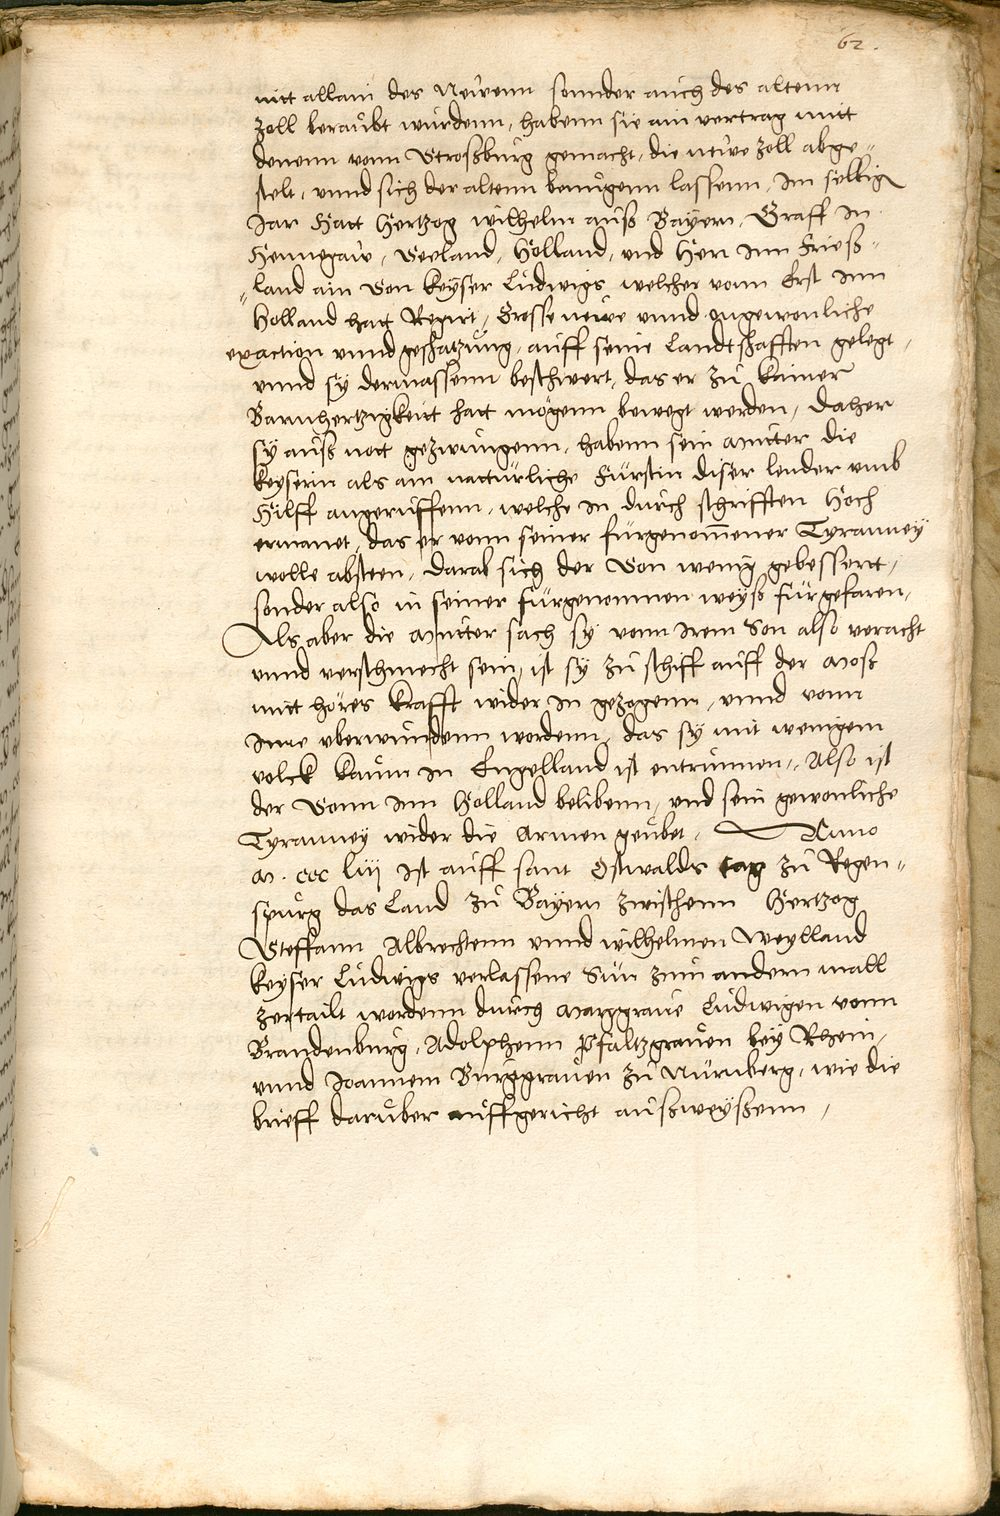 62.
nitt allain des Newenn sonnder auch des altenn
zoll beraubt wurdenn, habenn sie ain vertrag mitt
denenn vonn Stroßburg gemacht, die newe zoll abge„
stelt, vnnd sich der altenn benuͤgenn lassenn, Im selbig
Jar Hatt Hertzog Wilhelm auß Bayern, Graff in
Hennegaw, Seeland, Holland, vnd Herr Inn Frieß„
„land ain Son keyser Ludwigs welcher vonn Erst Inn
Holland hatt Regirt, Grosse newe vnnd vngewonliche
exaction vnnd geschatzung, auff seine Landtschafften gelegt,
vnnd sy dermassenn beschwert, das er zu kainer
Barmhertzigkeitt hatt mögenn bewegt werden, Daher
sy auß nott gezwungenn, habenn sein Mutter die
keyserin als ain natturliche Fürstin diser lender vmb
Hilff angeruffenn, welche in durch schrifften Hoch
ermanet, das er vonn seiner fürgenom̅ener Tyranney
wolle absteen, Darab sich der Son wenig gebessertt,
sonder also in seiner fürgenommen weyß fürgefaren,
Als aber die Mutter sach sy vonn Irem Son also veracht
vnnd verschmecht sein, ist sy zu schiff auff der Moß
mitt höres krafft wider in gezogenn, vnnd vonn
Ime vberwundenn wordenn, das sy mit wenigem
volck kaum in Engelland ist entrunnen, Also ist
der Sonn Inn Holland belibenn, vnd sein gewonliche
Tyranney wider die Armen geubet, Anno
M. ccc liij Ist auff sant Ostwalds tag zu Regen„
spurg das Land zu Bayern zwischenn Hertzog
Steffann Albrechtenn vnnd Wilhelmen Weylland
keyser Ludwigs verlassene Sün zum andern mall
zertailt wordenn durch Marggraue Ludwigen vonn
Brandenburg, Adolphenn Pfaltzgrauen bey Rhein,
vnnd Joannem Burggrauen zu Nurnberg, wie die
brieff daruber auffgericht außweyßenn,